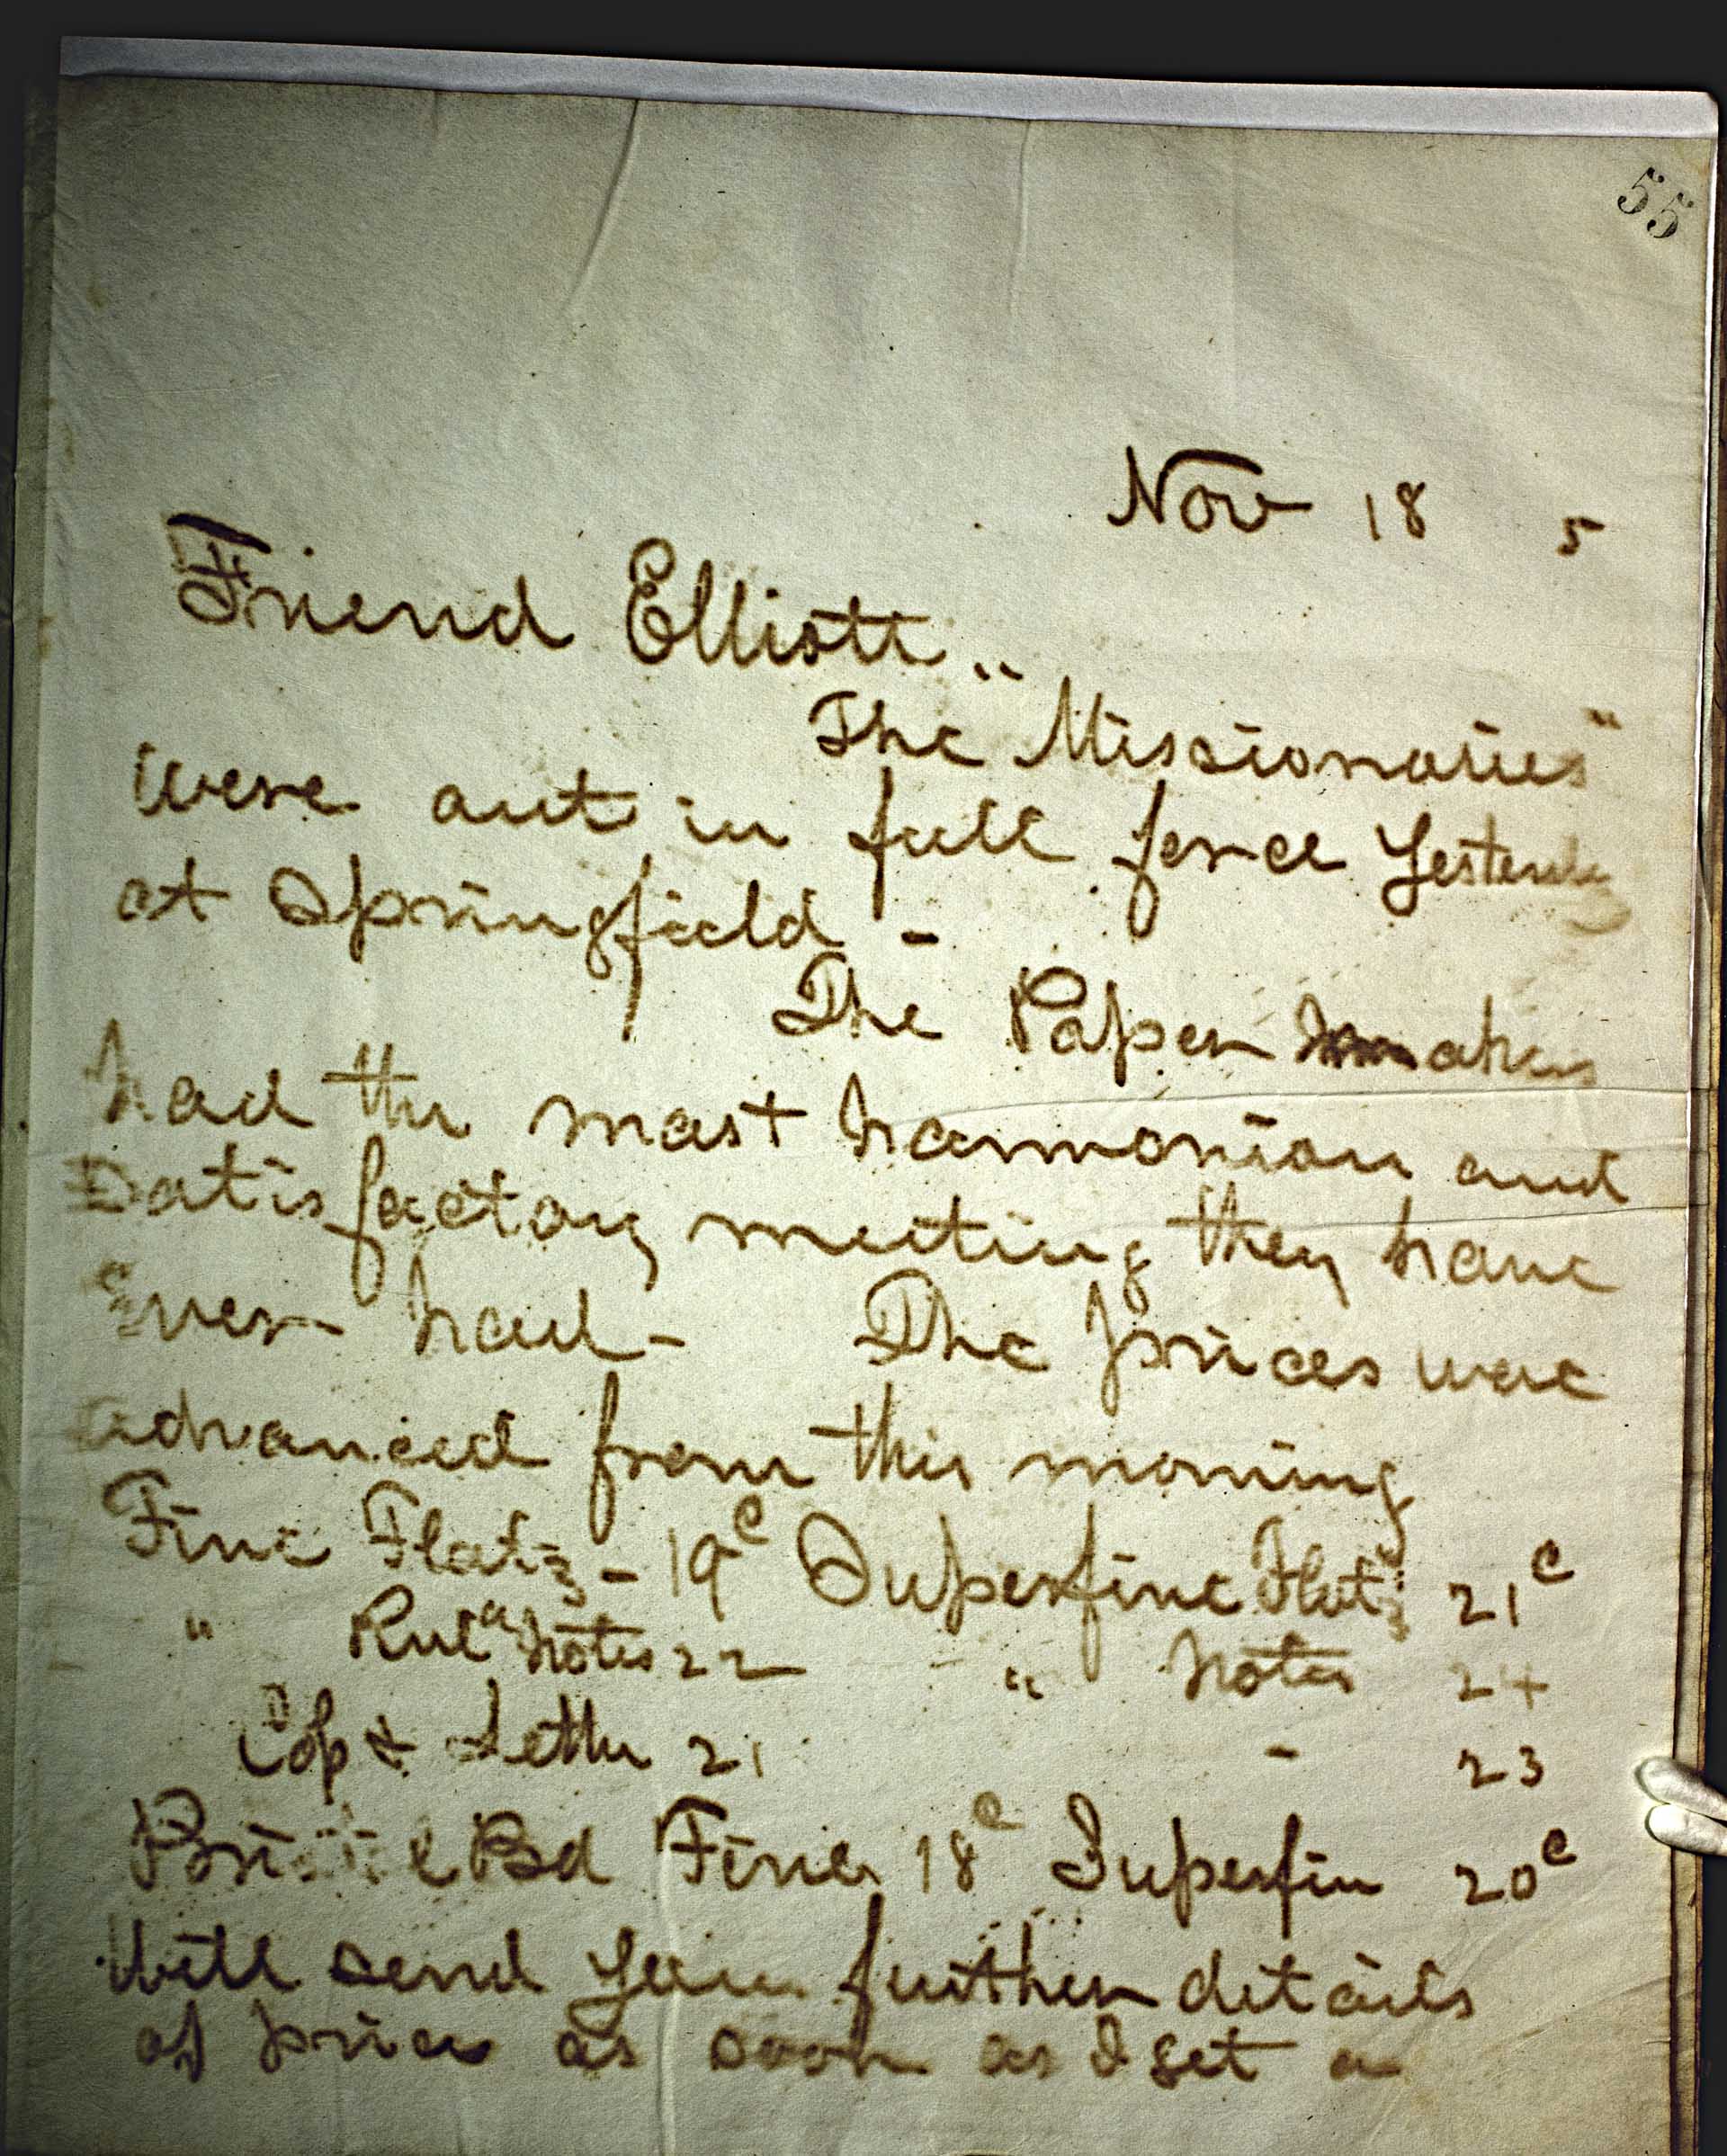 55
Nov 18 5
Friend Elliott..
The "Missionaries"
were out in full force Yesterday
at Springfield -
The Paper makers
had the most harmonious and
Satisfactory meeting they have
Ever had - The prices were
advanced from this morning
Fine Flats - 19c Superfine Flats 21c
" Ruld Notes 22 " Notes 24
Cap & Letter 21 - 23
Bd Fine 18c Superfin 20c
Will send you further details
of prices as soon as I get a